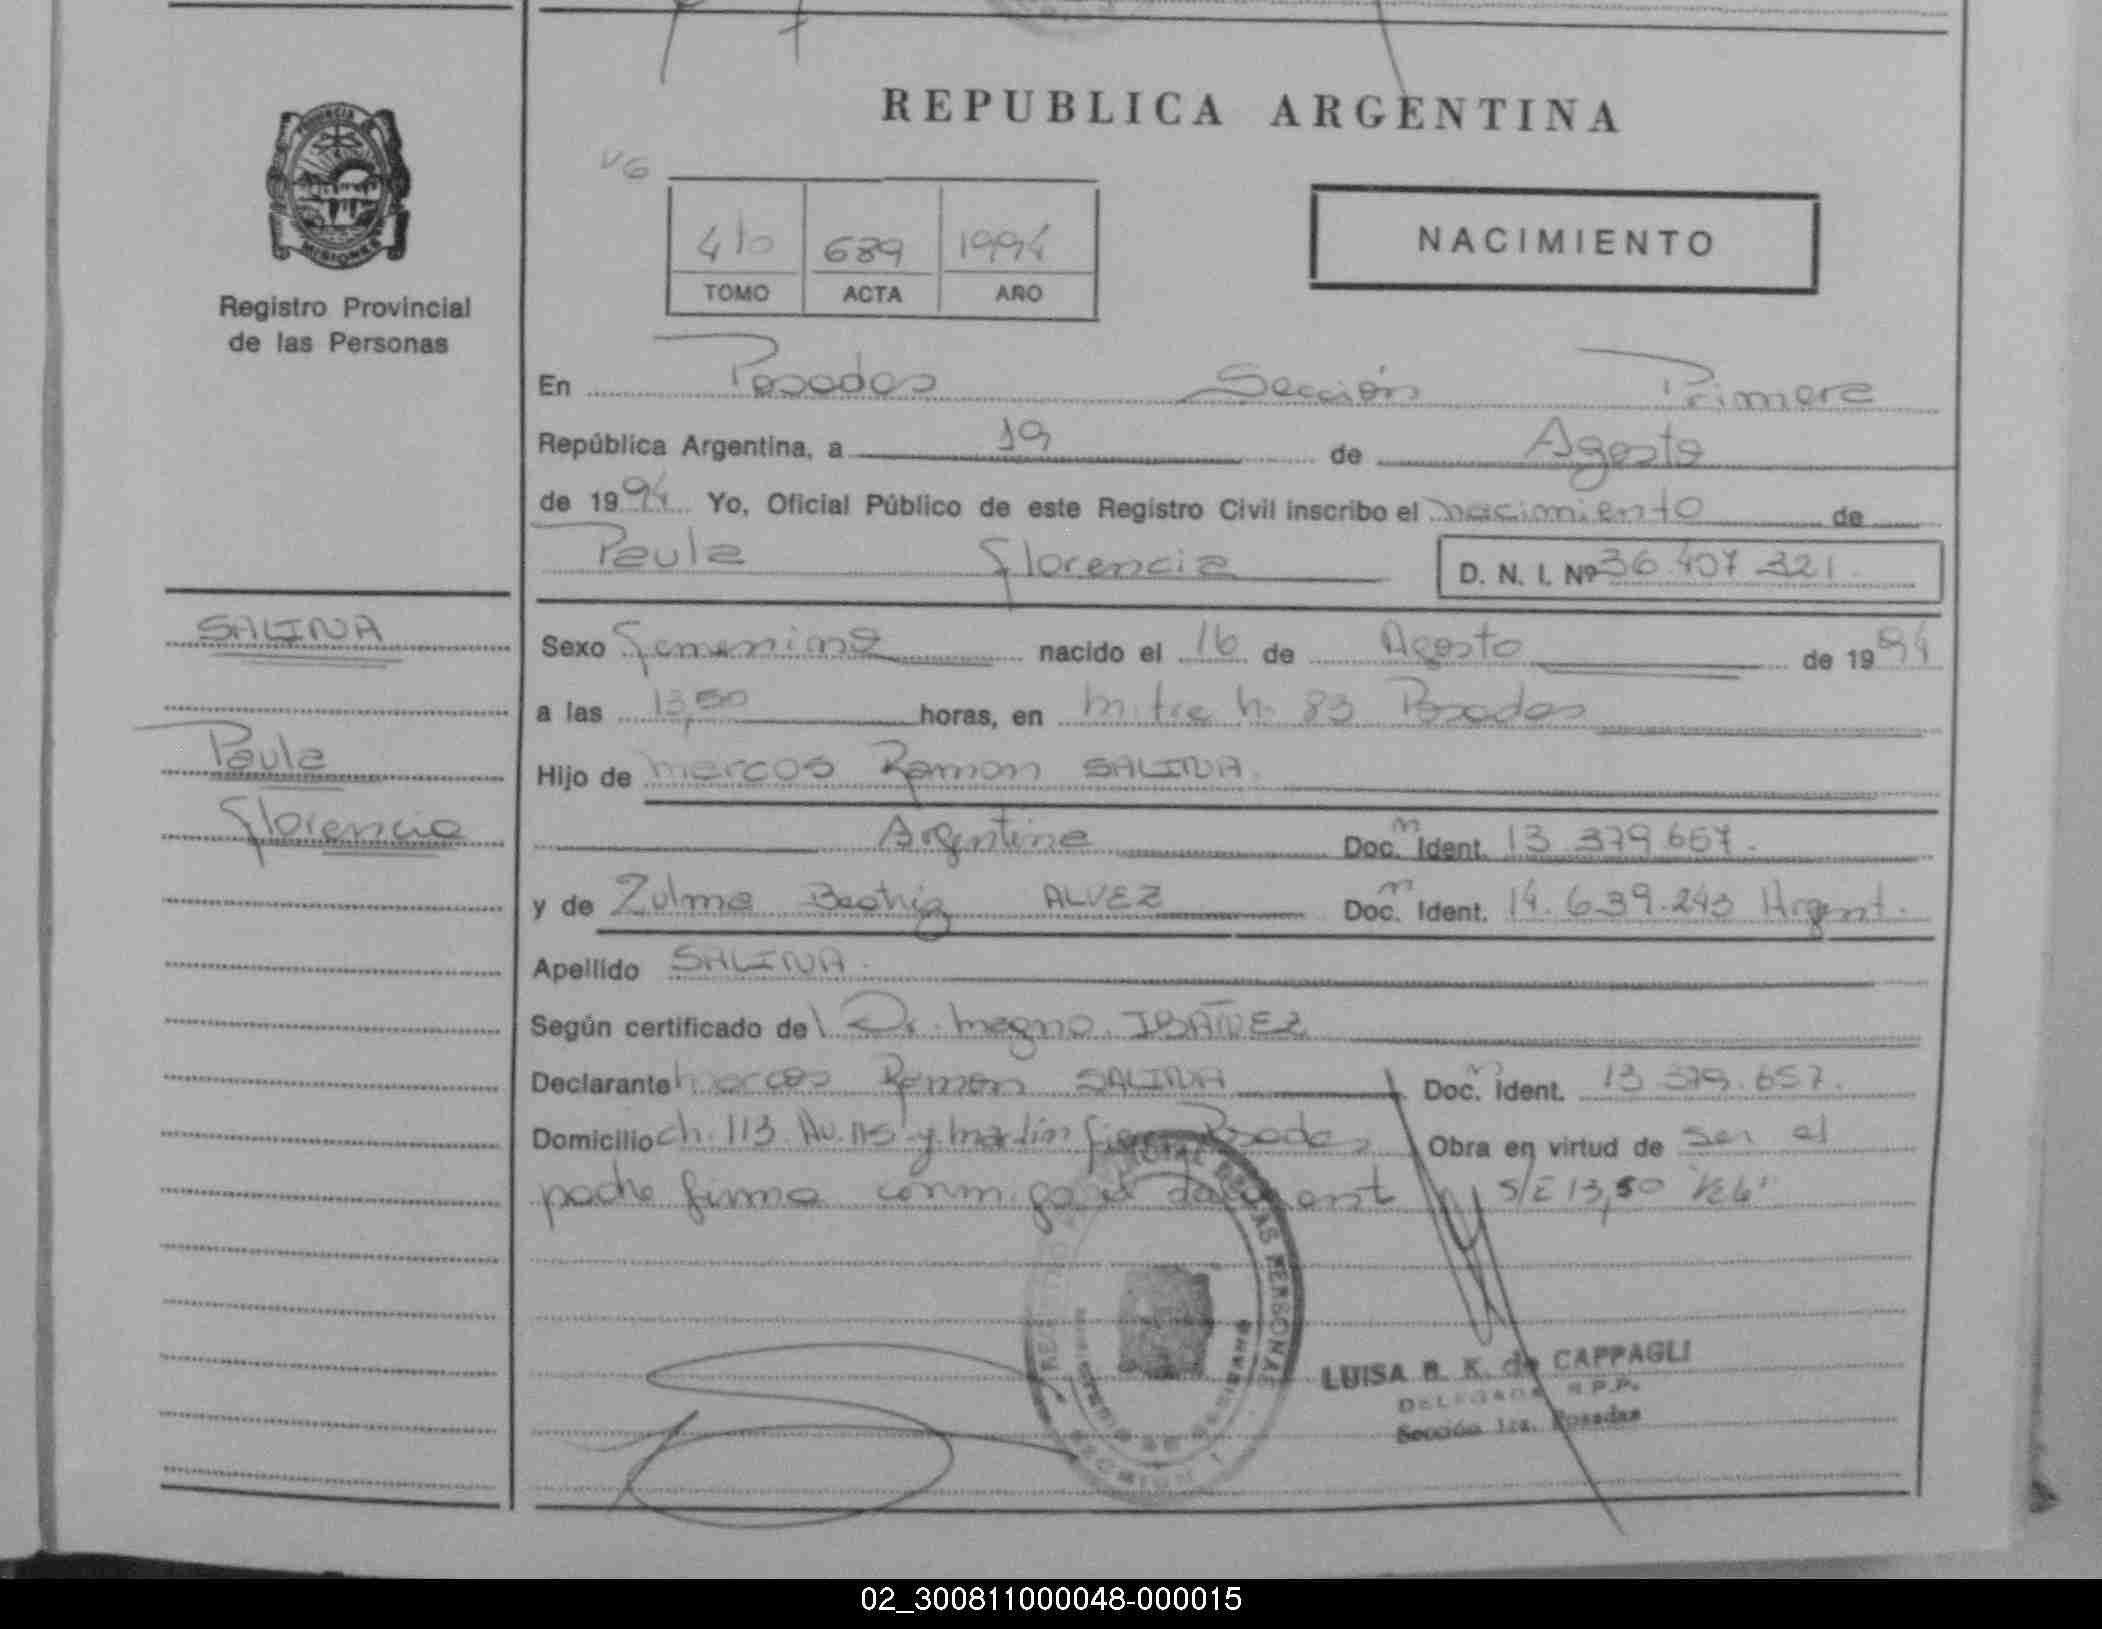 REPUBLICA ARGENTINA
PROVINCIA DE
MISIONES
Registro Provincial
de las Personas
VG
4to 689 1994
TOMO ACTA AÑO
NACIMIENTO
En Posadas Sección Primera
República Argentina, a 19 de Agosto
de 1994 Yo, Oficial Público de este Registro Civil inscribo el nacimiento de
Paula Florencia D. N. I. Nº 36.407.321.
SALINA
Paula
Florencia
Sexo Femenino nacido el 16 de Agosto de 1994
a las 13,50 horas, en Mitre n. 83 Posadas
Hijo de Marcos Ramon SALINA.
Argentino Doc. Ident. 13.379.657.
y de Zulma Beatriz ALVEZ Doc. Ident. 14.639.243 Argent.
Apellido SALINA.
Según certificado de Dr. Magno IBAÑEZ
Declarante Marcos Ramon SALINA Doc. Ident. 13.379.657.
Domicilio ch. 113 Av. 115 y Martin Posadas Obra en virtud de ser el
padre firma conmigo S/E 13,50
REGISTRO PROVINCIAL DE LAS PERSONAS
LUISA B. K. de CAPPAGLI
DELEGADA R.P.P.
Sección 1ra. Posadas
02_300811000048-000015